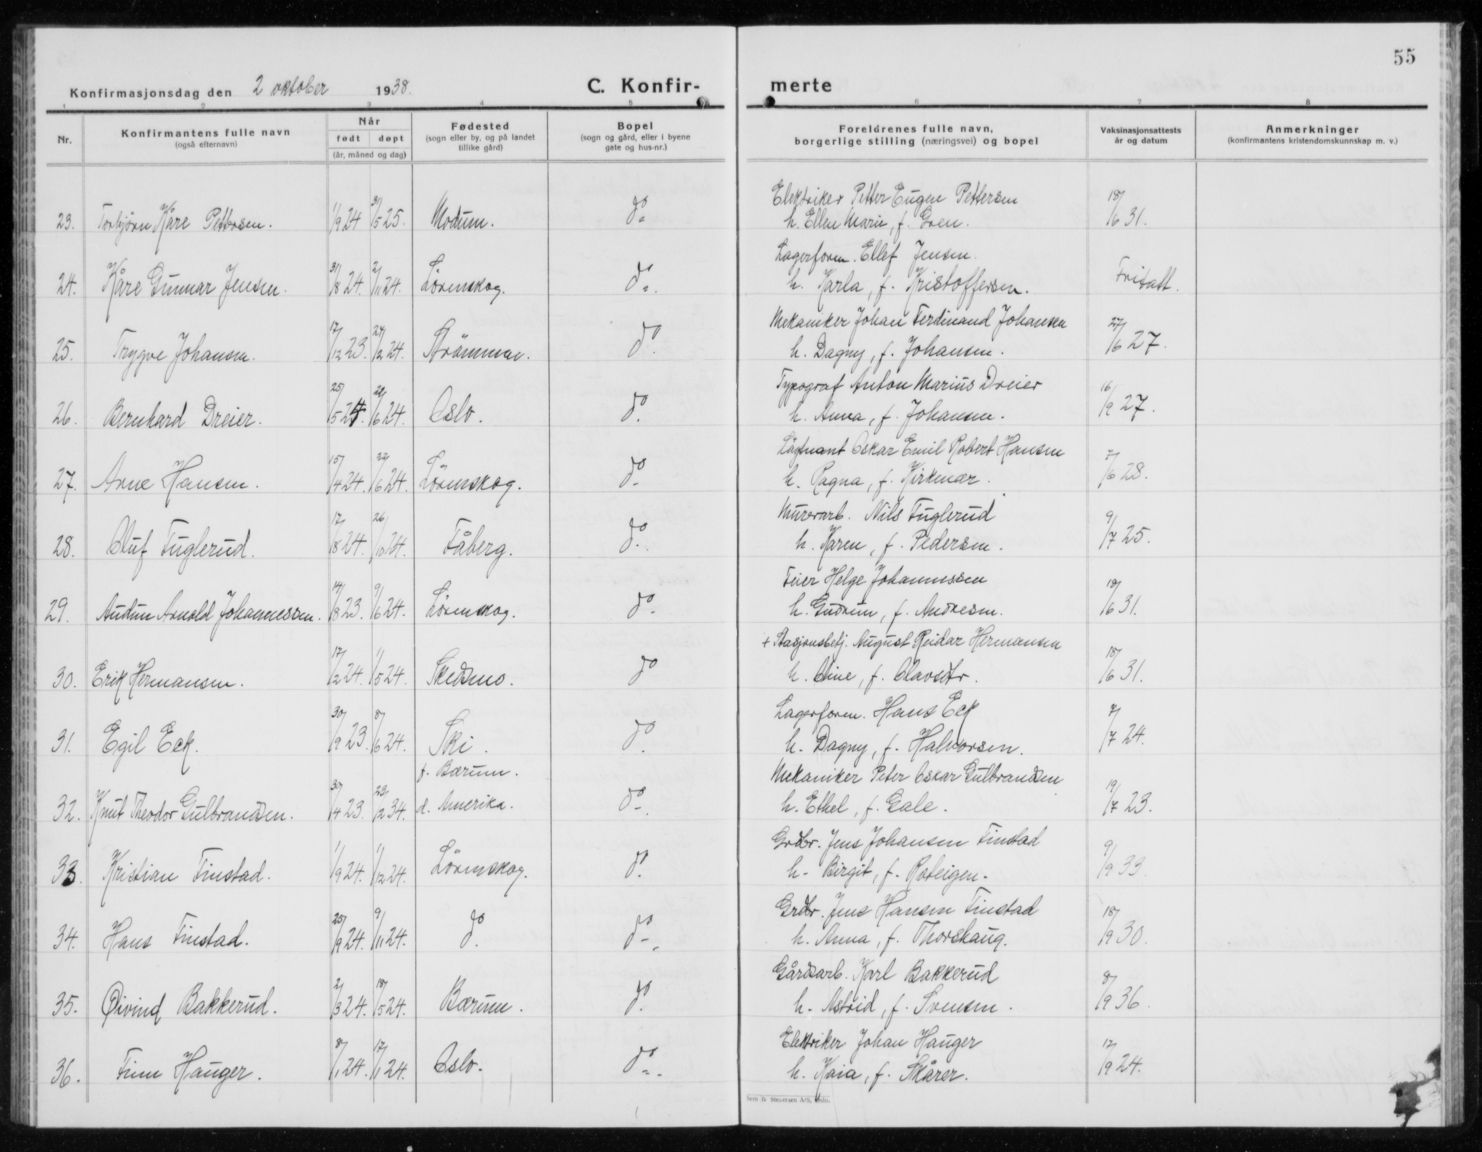 55
Konfirmasjonsdag den 2 oktober 1938. C. Konfir- merte
1 2 3 4 5 6 7 8
Nr. Konfirmantens fulle navn (også efternavn) Når født døpt (år, måned og dag) Fødested (sogn eller by, og på landet tillike gård) Bopel (sogn og gård, eller i byene gate og hus-nr.) Foreldrenes fulle navn, borgerlige stilling (næringsvei) og bopel Vaksinasjonsattests år og datum Anmerkninger (konfirmantens kristendomskunnskap m. v.)
Elektriker Petter Eugen Pettersen
23. Torbjørn Kåre Pettersen. 1/9 24 31/5 25. Modum. do h. Ellen Marie, f. 18/6 31.
Lagerform. Ellef Jensen.
24. Kåre Gunnar Jensen. 31/8 24. 2/11 24. Lørenskog. do. h. Karla, f. Kristoffersen. Fritatt.
Mekaniker Johan Ferdinand Johansen
25. Trygve Johansen. 17/12 23. 27/12 24. Strømmen. do. h. Dagny, f. Johansen. 27/6 27.
Typograf Anton Marius Dreier
26. Bernhard Dreier. 25/5 24. 22/6 24. Oslo. do. h. Anna, f. Johansen. 16/9 27.
Løitnant Oskar Emil Robert Hansen
27. Arne Hansen. 15/4 24. 22/6 24. Lørenskog. do. h. Ragna, f. Kirkmær. 7/6 28.
Murerarb. Nils Fuglerud
28. Oluf Fuglerud. 17/8 24. 26/10 24. Fåberg. do. h. Karen, f. Pedersen. 9/7 25.
Feier Helge Johannessen
29. Audun Arnold Johannessen. 14/8 23. 9/6 24. Lørenskog. do. h. Gudrun, f. Andresen. 18/6 31.
+ Stasjonsbetj. August Reidar Hermansen
30. Erik Hermansen. 17/2 24. 1/5 24. Skedsmo. do h. Aline, f. Olavsdtr. 18/6 31.
Lagerform. Hans Eck
31. Egil Eck. 30/9 23. 8/6 24. Ski. do. h. Dagny, f. Halvorsen. 7/7 24.
f. Bærum. Mekaniker Peter Oscar Gulbrandsen
32. Knut Theodor Gulbrandsen. 30/4 23. 23/2 34. d. Amerika. do. h. Ethel, f. Gale. 19/7 23.
Grdbr. Jens Johansen Finstad
33. Kristian Finstad. 1/9 24. 1/12 24. Lørenskog. do. h. Birgit, f. Roteigen. 9/9 33.
Grdbr. Jens Hansen Finstad
34. Hans Finstad. 20/9 24. 9/11 24. do. do. h. Anna, f. Thorshaug. 18/9 30.
Gårdsarb. Karl Bakkerud
35. Øivind Bakkerud. 2/3 24. 18/5 24. Bærum. do. h. Astrid, f. Svensen. 8/9 36.
Elektriker Johan Hauger
36. Finn Hauger. 8/1 24. 17/1 24. Oslo. do. h. Kaia, f. Skårer. 12/9 24.